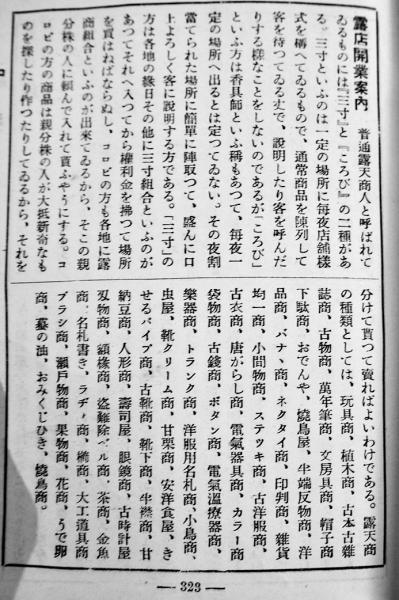 露店開業案内　普通露天商人と呼ばれて
ゐるものには『三寸』と『ころび』の二種があ
る。三寸といふのは一定の場所に毎夜店舗様
式を備へてゐるもので、通常商品を陳列して
客を待つてゐる丈で、説明したり客を呼んだ
りする様なことをしないのであるが『ころび』
といふ方は香具師といふ稱もあつて、毎夜一
定の場所へ出るとは定つてゐない。その夜割
當てられた場所に簡單に陣取つて、盛んに口
上よろしく客に説明する方である。『三寸』の
方は各地の縁日その他に三寸組合といふのが
あつてそれへ入つてから權利金を拂つて場所
を買はねばならぬし、コロビの方も各地に露
商組合といふのが出來てゐるから、そこの親
分株の人に頼んで入れて貰ふやうにする。コ
ロビの方の商品は親分株の人が大抵新奇なも
のを探したり作つたりしてゐるから、それを
分けて貰つて賣ればよいわけである。露天商
の種類としては、玩具商、植木商、古本古雜
誌商、古物商、萬年筆商、文房具商、帽子商
下駄商、おでんや、燒鳥屋、半端反物商、洋
品商、バナヽ商、ネクタイ商、印判商、雜貨
均一商、小間物商、ステツキ商、古洋服商、
古衣商、唐がらし商、電氣器具商、カラー商
袋物商、古錢商、ボタン商、電氣溫療器商、
樂器商、トランク商、洋服用名札商、小鳥商、
虫屋、靴クリーム商、甘栗商、安洋食屋、き
せるパイプ商、古靴商、靴下商、半襟商、甘
納豆商、人形商、壽司屋、眼鏡商、古時計屋
刄物商、額椽商、盜難除ベル商、茶商、金魚
商、名札書き、ラヂオ商、櫛商、大工道具商
ブラシ商、瀨戸物商、果物商、花商、うで卵
商、蟇の油、おみくじひき、燒鳥商。
— 323 —